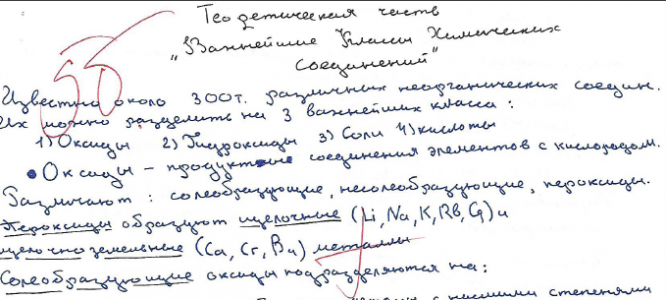 Теоретическая часть
„Важнейшие Классы Химических
соединений"
55
Известно около 300т. различных неорганических соедин.
Их можно разделить на 3 важнейших класса:
1) Оксиды 2) Гидроксиды 3) Соли 4) кислоты
• Оксиды – продукт соединения элементов с кислородом.
Различают: солеобразующие, несолеобразующие, пероксиды.
Пероксиды образуют щелочные (Li, Na, K, Rb, Cs) и
щелочноземельные (Ca, Cr, Ba) металлы
Солеобразующие оксиды подразделяются на:
с низшими степенями